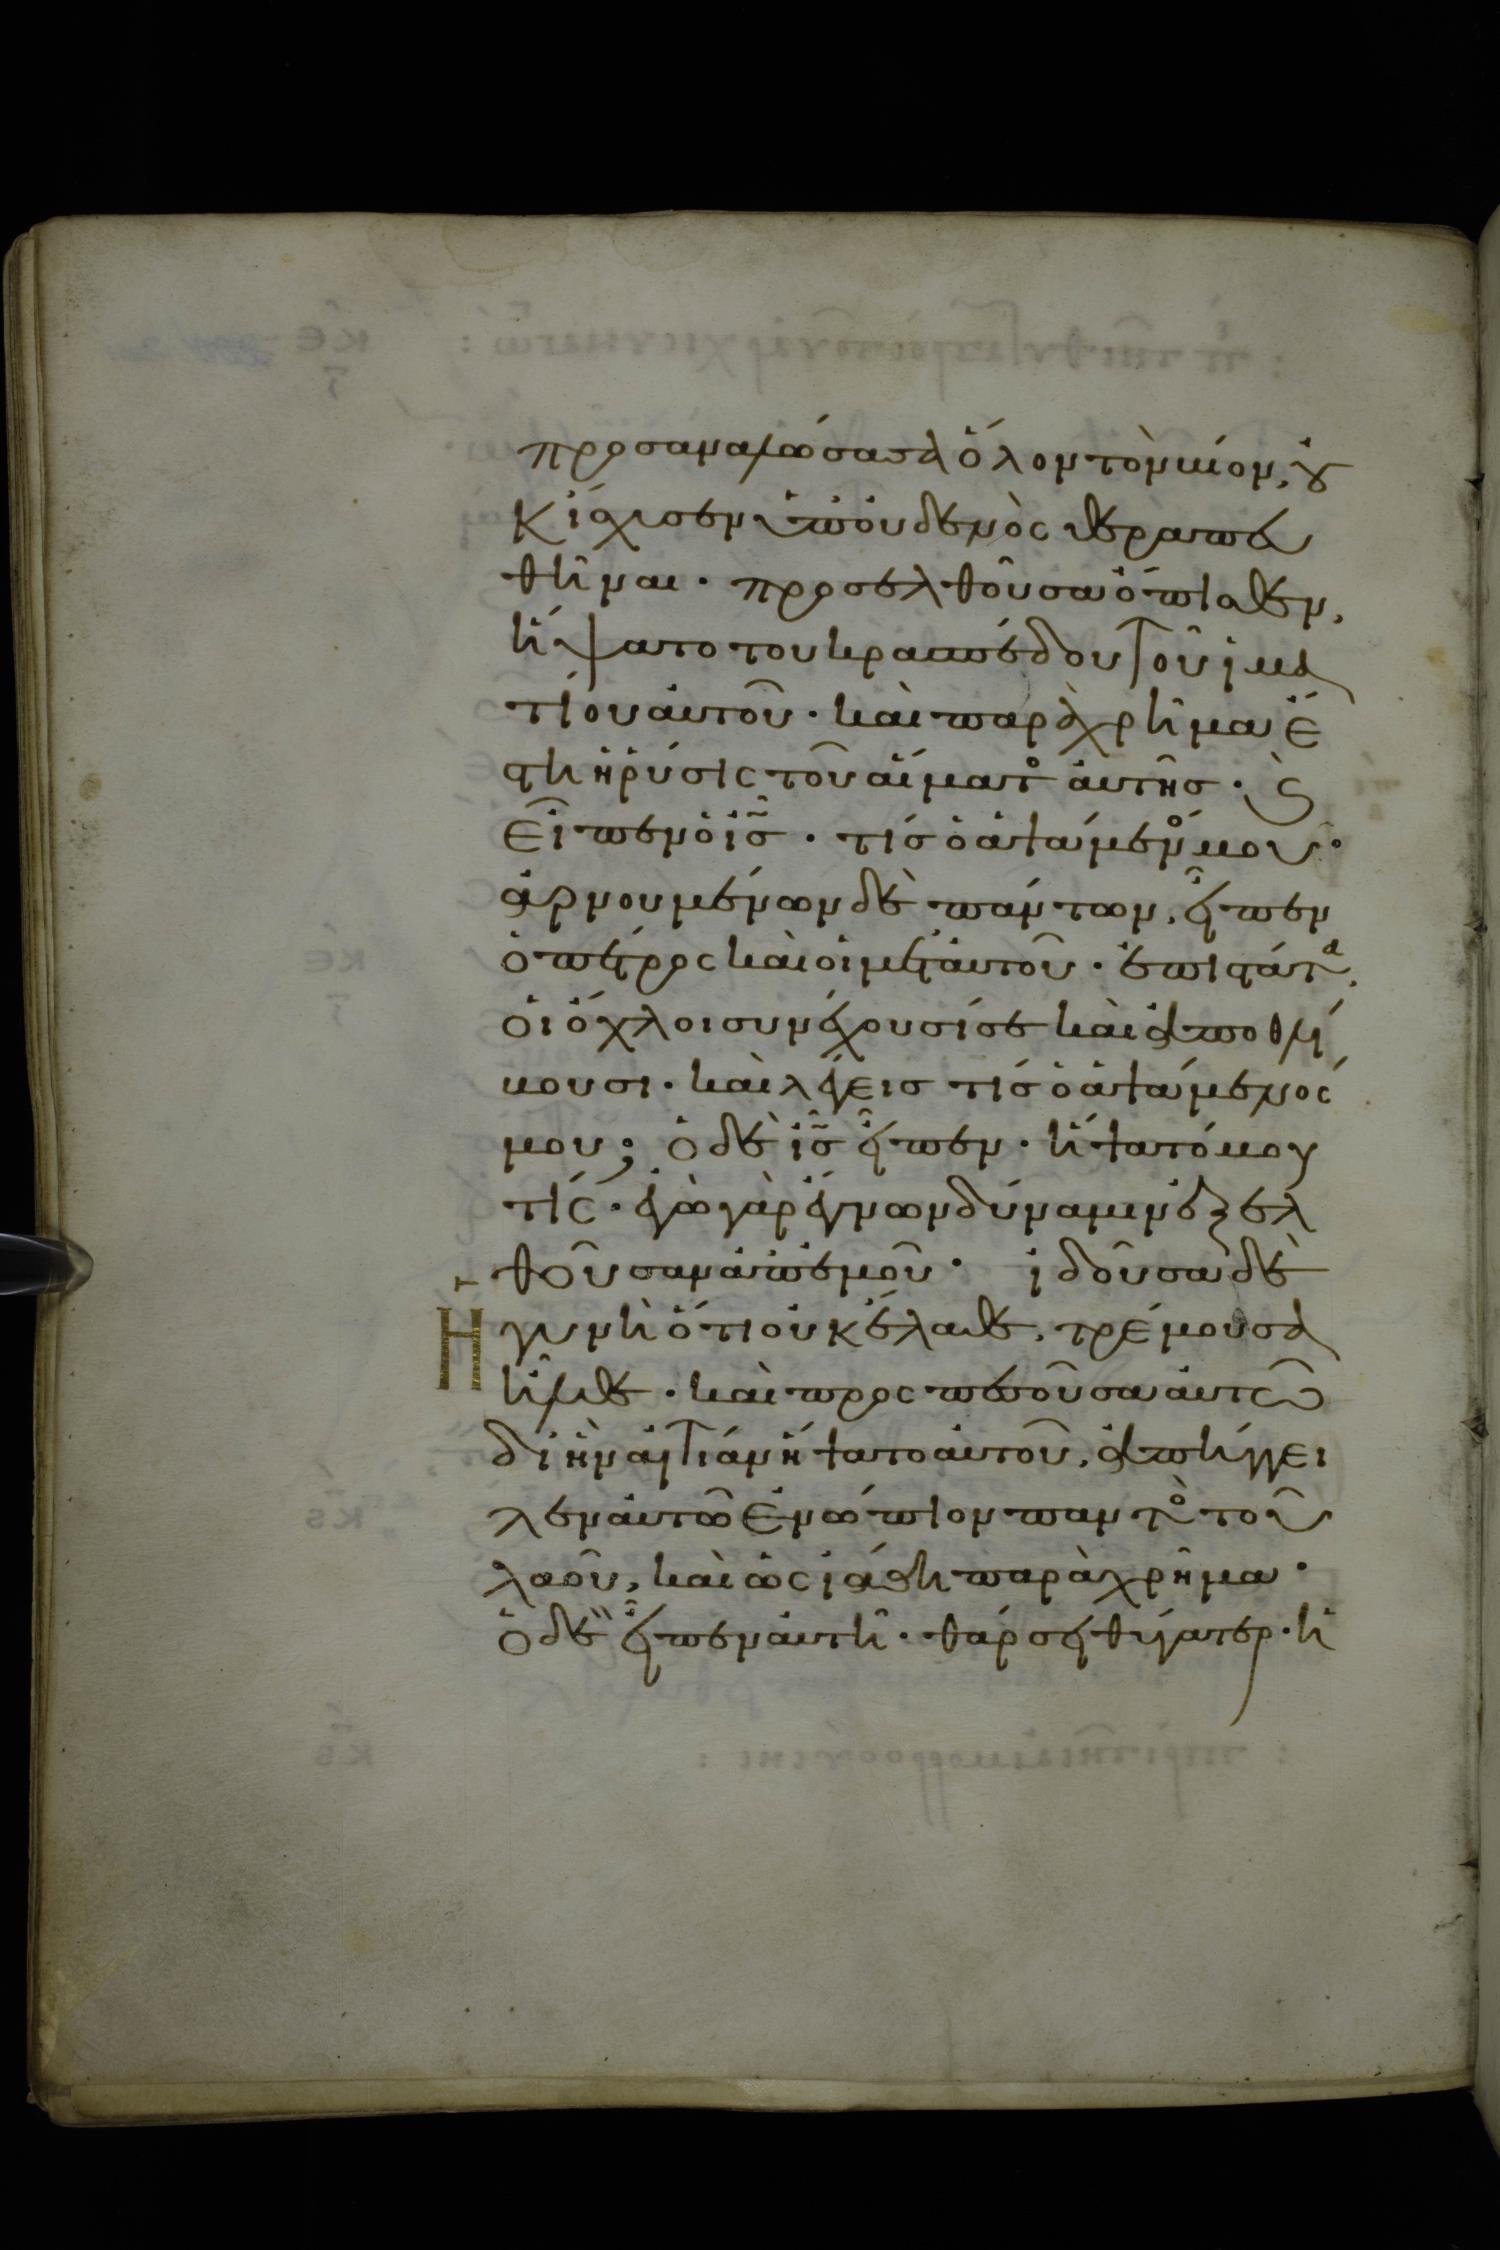 προσαναλώσασα ὅλον τὸν βίον, οὐ
κ ἴσχυσεν ὑπ' οὐδενὸς θεραπευ
θῆναι· προσελθοῦσα ὄπισθεν,
ἥψατο του κρασπέδου τοῦ ἱμα
τίου αὐτοῦ· καὶ παραχρῆμα ἔ
στη ἡ ῥύσις τοῦ αἵματος αὐτῆς· καὶ
εἶπεν ὁ ις̄· τίς ὁ ἁψάμενός μου·
ἀρνουμένων δὲ πάντων, εἶπεν
ὁ πέτρος καὶ οἱ μετ' αὐτοῦ· ἐπιστάτα,
οἱ ὄχλοι συνέχουσί σε καὶ ἀποθλί
βουσι· καὶ λέγεις τίς ὁ ἁψάμενός
μου; ὁ δὲ ις̄ εἶπεν· ἥψατό μου
τίς· ἐγὼ γὰρ ἔγνων δύναμιν ἐξελ
θοῦσαν ἀπ' ἐμοῦ· ἰδοῦσα δὲ
Ἡ γυνὴ ὅτι οὐκ ἔλαθε, τρέμουσα
ἦλθε· καὶ προσπεσοῦσα αὐτῶ
δι' ἣν αἰτίαν ἥψατο αὐτοῦ, ἀπήγγει
λεν αὐτῶ ἐνώπιον παντὸς τοῦ
λαοῦ, καὶ ὡς ἰάθη παραχρῆμα·
ὁ δὲ εἶπεν αὐτῆ· θάρσει θύγατερ· ἡ